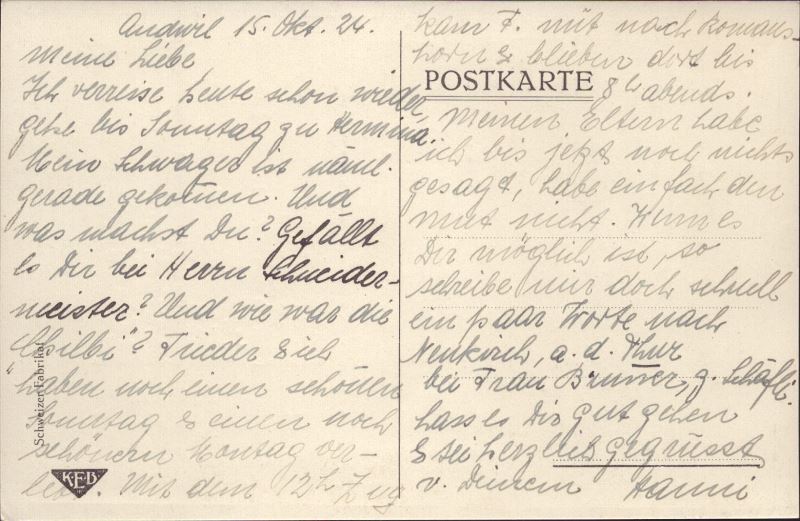 Andwil 15. Okt. 24.
Meine Liebe
Ich verreise heute schon wieder,
gehe bis Sonntag zu Hermina.
Mein Schwager ist näml.
gerade gekommen. Und
was machst Du? Gefällt
es Dir bei Herrn Schneider-
meister? Und wie war die
"Chilbi"? Frieder & ich
haben noch einen schönen
Sonntag & einen noch
schönern Montag ver-
lebt. Mit dem 12h Zug
Schweizer Fabrikat
K.E.B
kam F. mit nach Romans-
horn & blieben dort bis
POSTKARTE
8h abends.
Meinen Eltern habe
ich bis jetzt noch nichts
gesagt, habe einfach den
Mut nicht. Wenn es
Dir möglich ist, so
schreibe mir doch schnell
ein paar Worte nach
Neukirch, a. d. Thur
bei Frau Brunner, z. Schäfli.
Lass es Dir gut gehen
& sei herzlich gegrüsst
v. Deinem Hanni